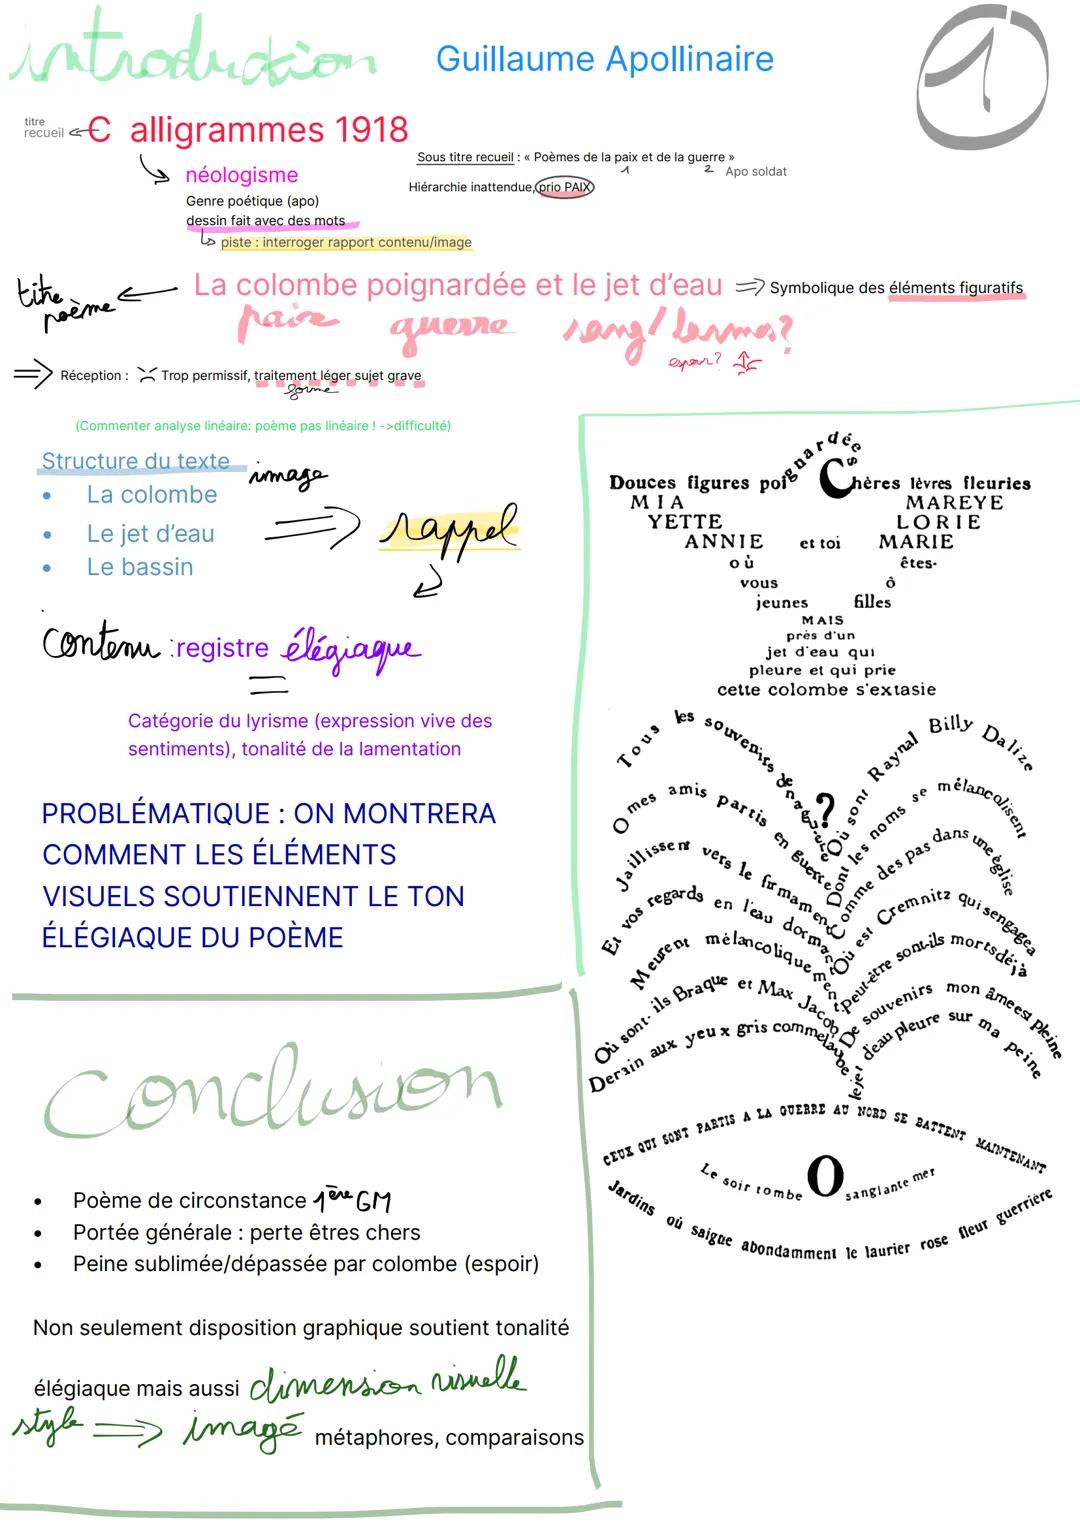 introduction
Guillaume Apollinaire
1
titre recueil
Calligrammes 1918
Sous titre recueil : « Poèmes de la paix et de la guerre »
1 2 Apo soldat
néologisme
Hiérarchie inattendue, prio PAIX
Genre poétique (apo)
dessin fait avec des mots
piste : interroger rapport contenu/image
titre poème
La colombe poignardée et le jet d'eau
Symbolique des éléments figuratifs
paix guerre sang/larmes?
espoir?
Réception : Trop permissif, traitement léger sujet grave
forme
(Commenter analyse linéaire: poème pas linéaire ! ->difficulté)
Structure du texte
image
• La colombe
• Le jet d'eau
• Le bassin
rappel
contenu : registre élégiaque
=
Catégorie du lyrisme (expression vive des
sentiments), tonalité de la lamentation
PROBLÉMATIQUE : ON MONTRERA
COMMENT LES ÉLÉMENTS
VISUELS SOUTIENNENT LE TON
ÉLÉGIAQUE DU POÈME
Douces figures poignardées Chères lèvres fleuries
MIA MAREYE
YETTE LORIE
ANNIE et toi MARIE
où êtes-
vous ô
jeunes filles
MAIS
près d'un
jet d'eau qui
pleure et qui prie
cette colombe s'extasie
Tous les souvenirs de naguère
O mes amis partis en guerre
Jaillissent vers le firmament
Et vos regards en l'eau dormant
Meurent mélancoliquement
Où sont-ils Braque et Max Jacob
Derain aux yeux gris comme l'aube
?
Où sont Raynal Billy Dalize
Dont les noms se mélancolisent
Comme des pas dans une église
Où est Cremnitz qui s'engagea
Peut-être sont-ils morts déjà
De souvenirs mon âme est pleine
Le jet d'eau pleure sur ma peine
CEUX QUI SONT PARTIS A LA GUERRE AU NORD SE BATTENT MAINTENANT
Le soir tombe O sanglante mer
Jardins où saigne abondamment le laurier rose fleur guerrière
Conclusion
• Poème de circonstance 1ère GM
• Portée générale : perte êtres chers
• Peine sublimée/dépassée par colombe (espoir)
Non seulement disposition graphique soutient tonalité
élégiaque mais aussi dimension visuelle
style imagé métaphores, comparaisons